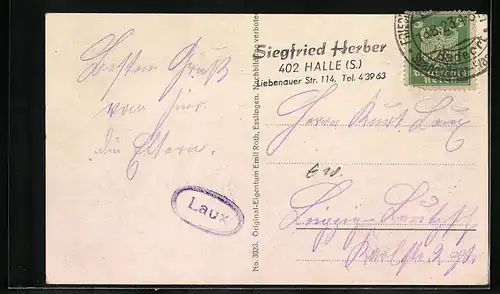 Besten Gruß
von hier
die Eltern.
Laux
No. 3023. Original-Eigentum Emil Roth, Esslingen. Nachbildung verboten
Siegfried Herber
402 HALLE (S.)
Liebenauer Str. 114. Tel. 43963
Herrn Kurt Laux
Leipzig-Leutzsch